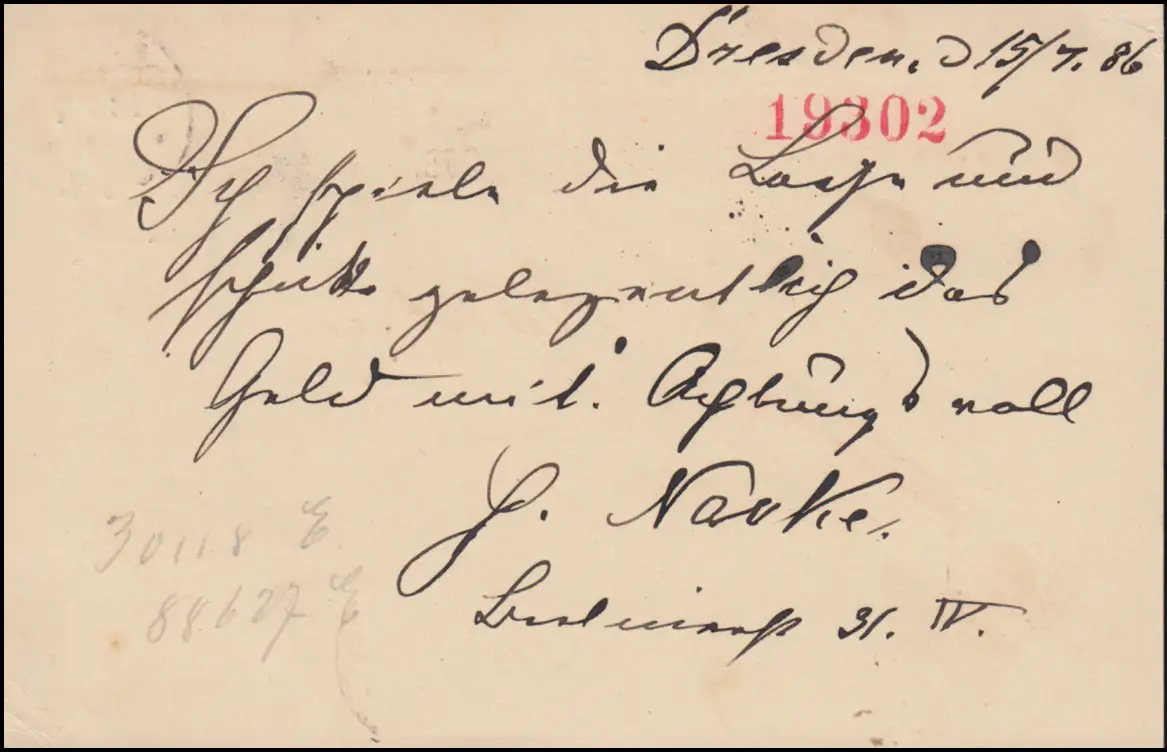 Dresden, d 15/7. 86
19302
Ich spiele die Loose und
schicke gelegentlich das
Geld mit. Achtungsvoll
Nauke.
31. IV.
30118 E
88627 E